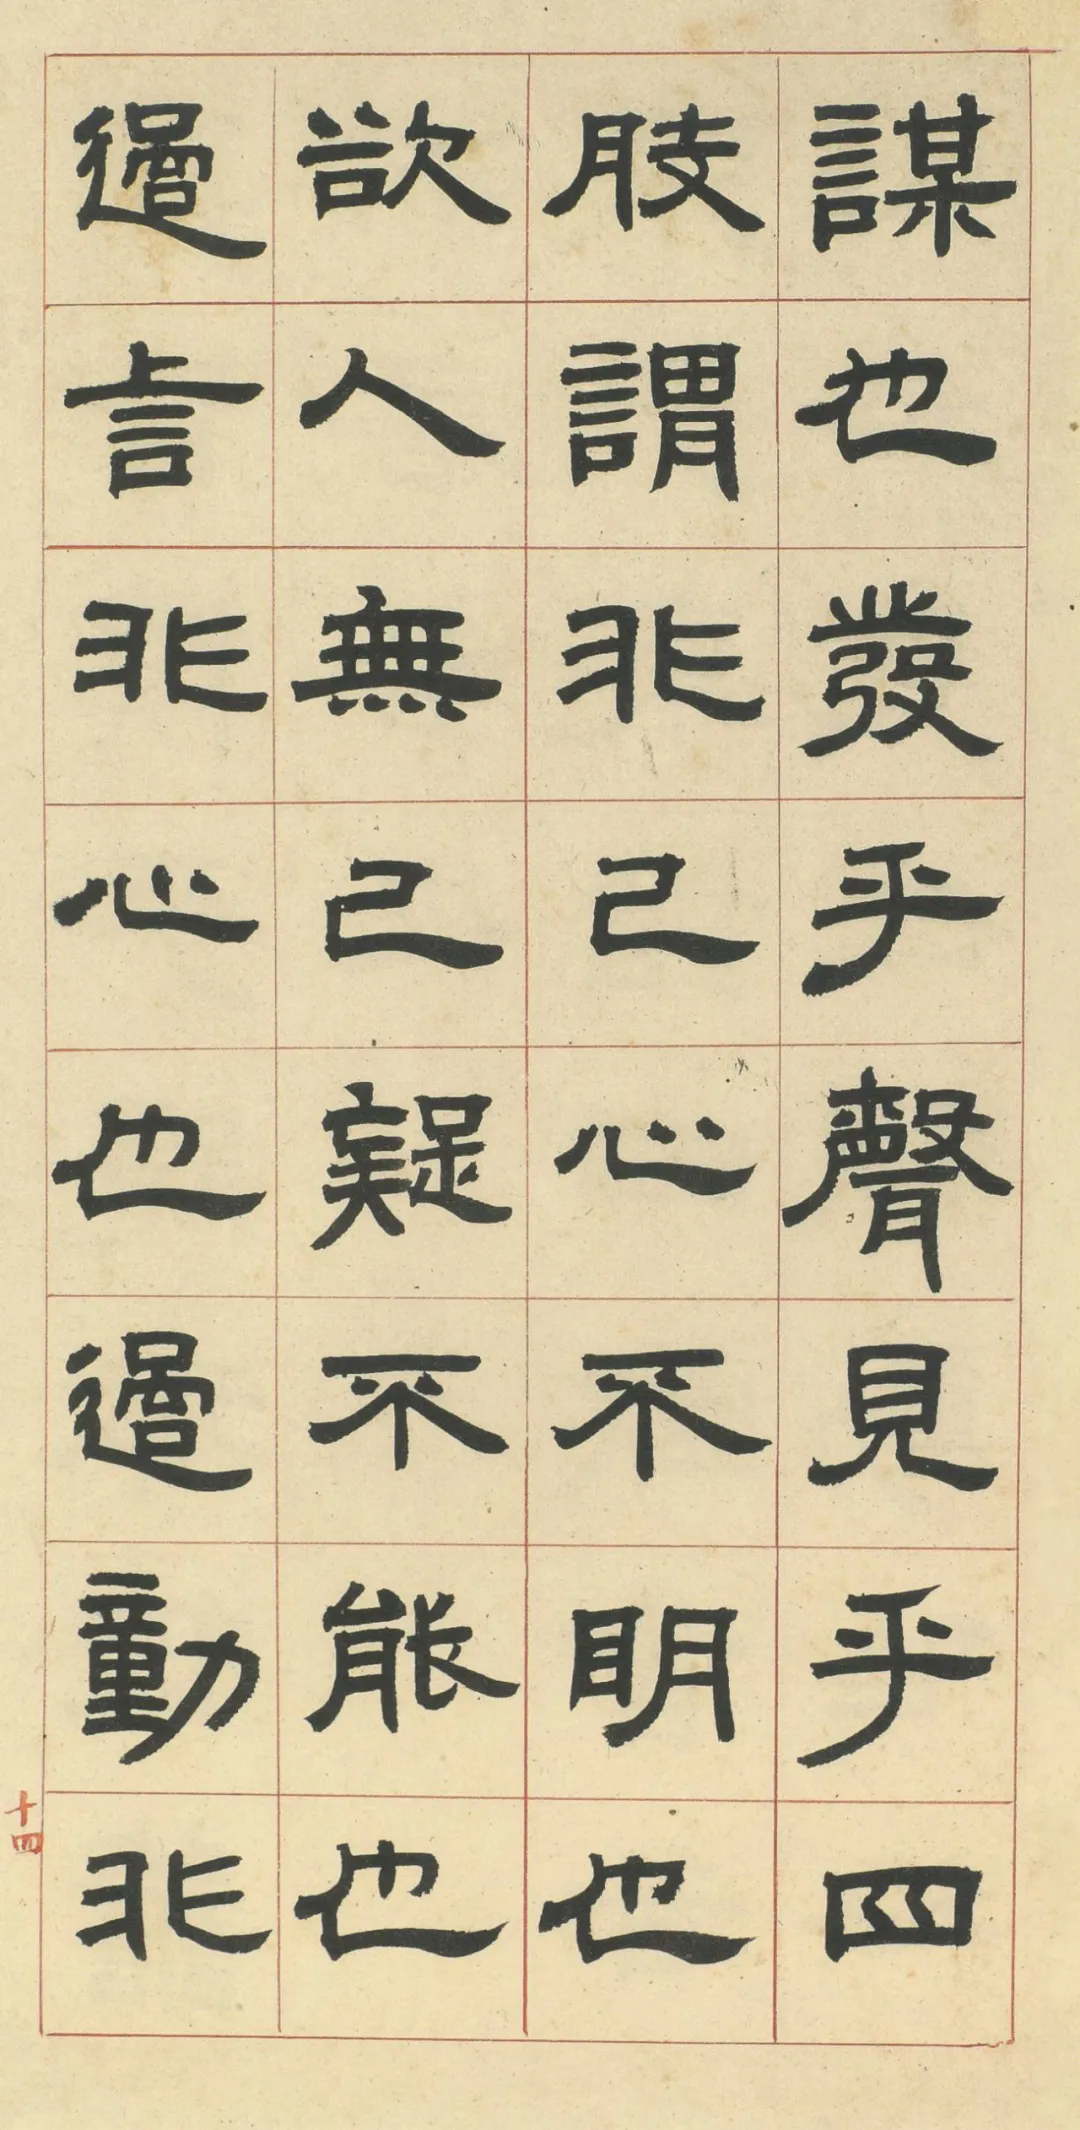 謀也發乎聲見乎四
肢謂非己心不明也
欲人無己疑不能也
過言非心也過動非
十四